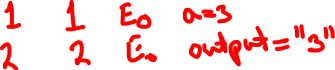 1 1 E₀ a=3
2 2 E₀ output="3"